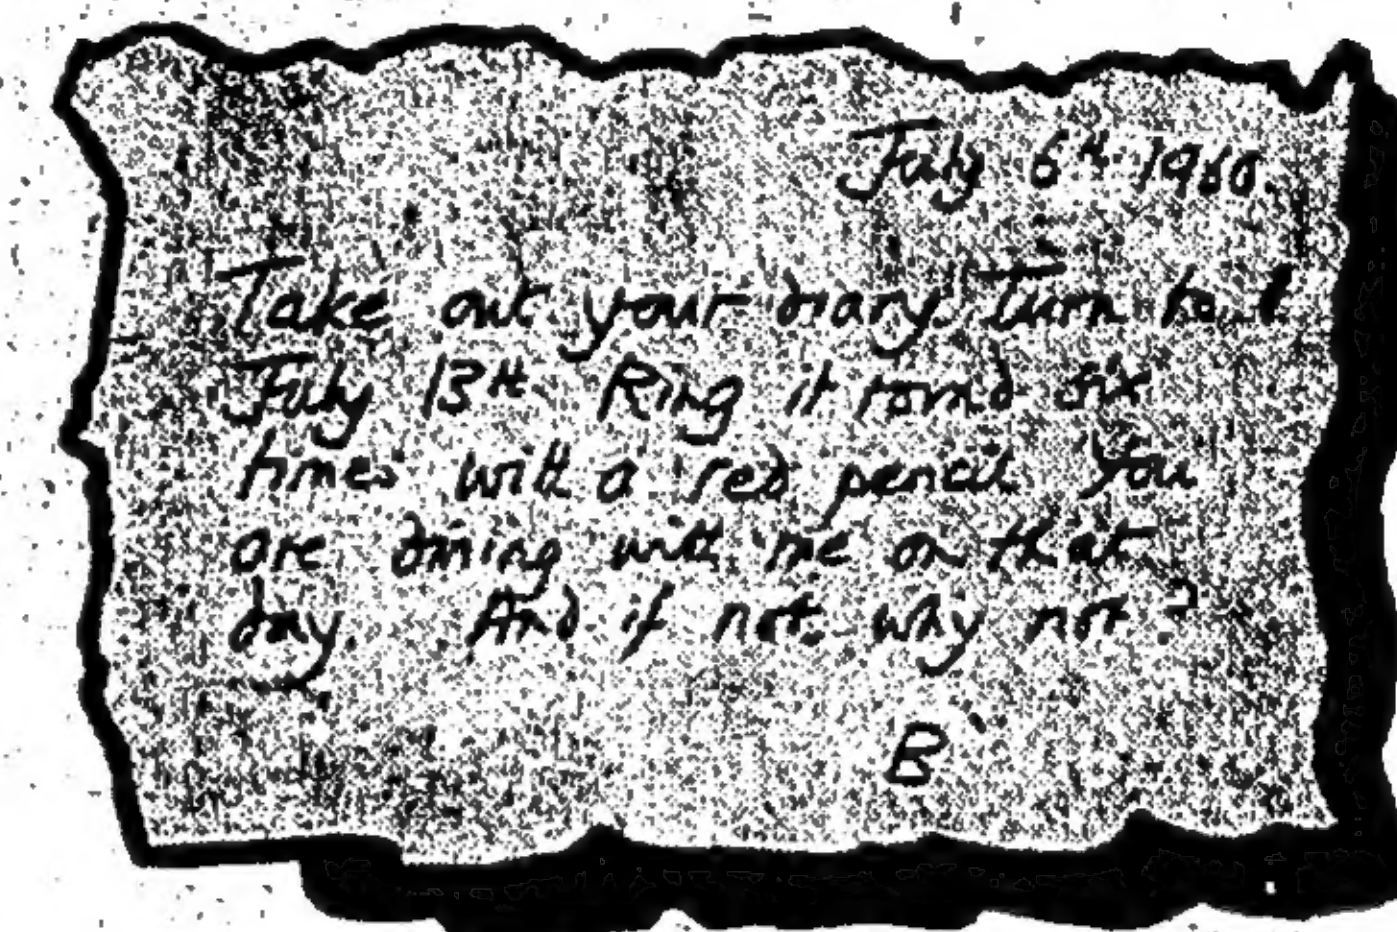 July 6th 1960.
Take out your diary. Turn to
July 13th. Ring it round six
times with a red pencil. You
are dining with me on that
day. And if not, why not?
B